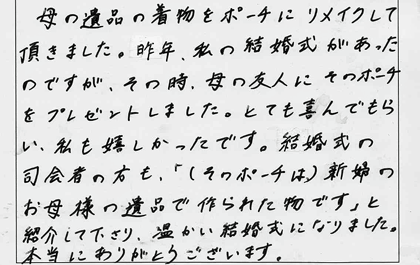 母の遺品の着物をポーチに リメイクして
頂きました。昨年、私の結婚式があった
のですが、その時、母の友人に そのポーチ
をプレゼントしました。とても喜んでもら
い、私も嬉しかったです。結婚式の
司会者の方も、「(そのポーチは)新婦の
お母様の遺品で作られた物です」と
紹介して下さり、温かい結婚式になりました。
本当にありがとうございます。